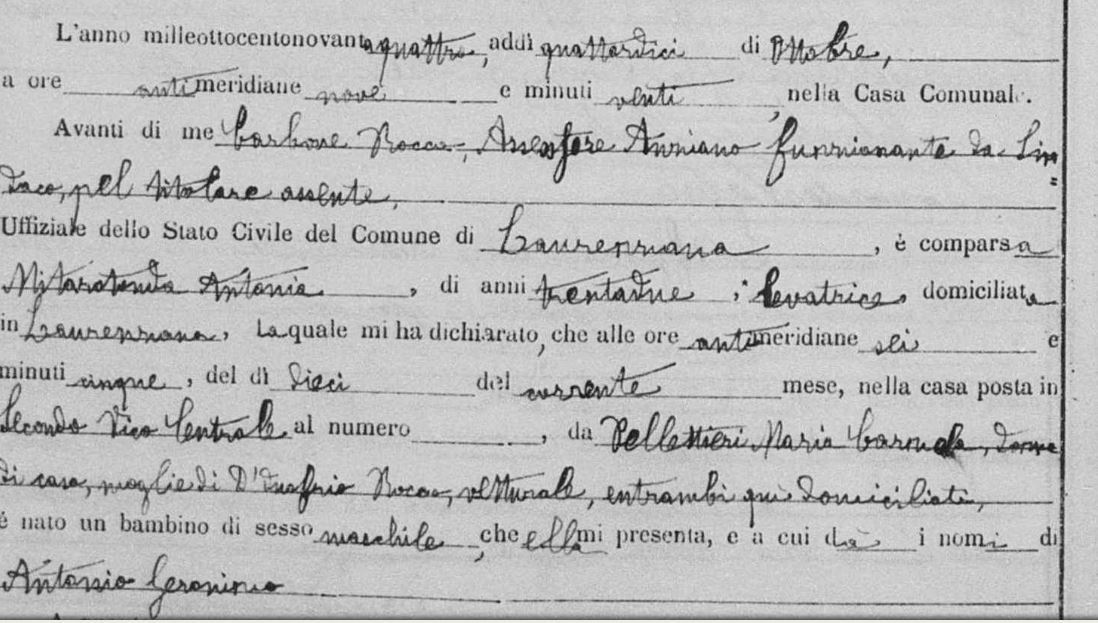 L'anno milleottocentonovantaquattro, addì quattordici di Ottobre,
a ore antimeridiane nove e minuti venti, nella Casa Comunale.
Avanti di me Carbone Rocco, Assessore Anziano funzionante da Sin=
daco, pel titolare assente,
Uffiziale dello Stato Civile del Comune di Laurenzana, è comparsa
Mitarotonda Antonia, di anni trentadue, levatrice, domiciliata
in Laurenzana, la quale mi ha dichiarato, che alle ore antimeridiane sei e
minuti cinque, del dì dieci del corrente mese, nella casa posta in
Secondo Vico Centrale al numero, da Pellettieri Maria Carmela, donna
di casa, moglie di D'Onofrio Rocco, vetturale, entrambi qui domiciliati,
è nato un bambino di sesso maschile, che ella mi presenta, e a cui dà i nomi di
Antonio Geronimo